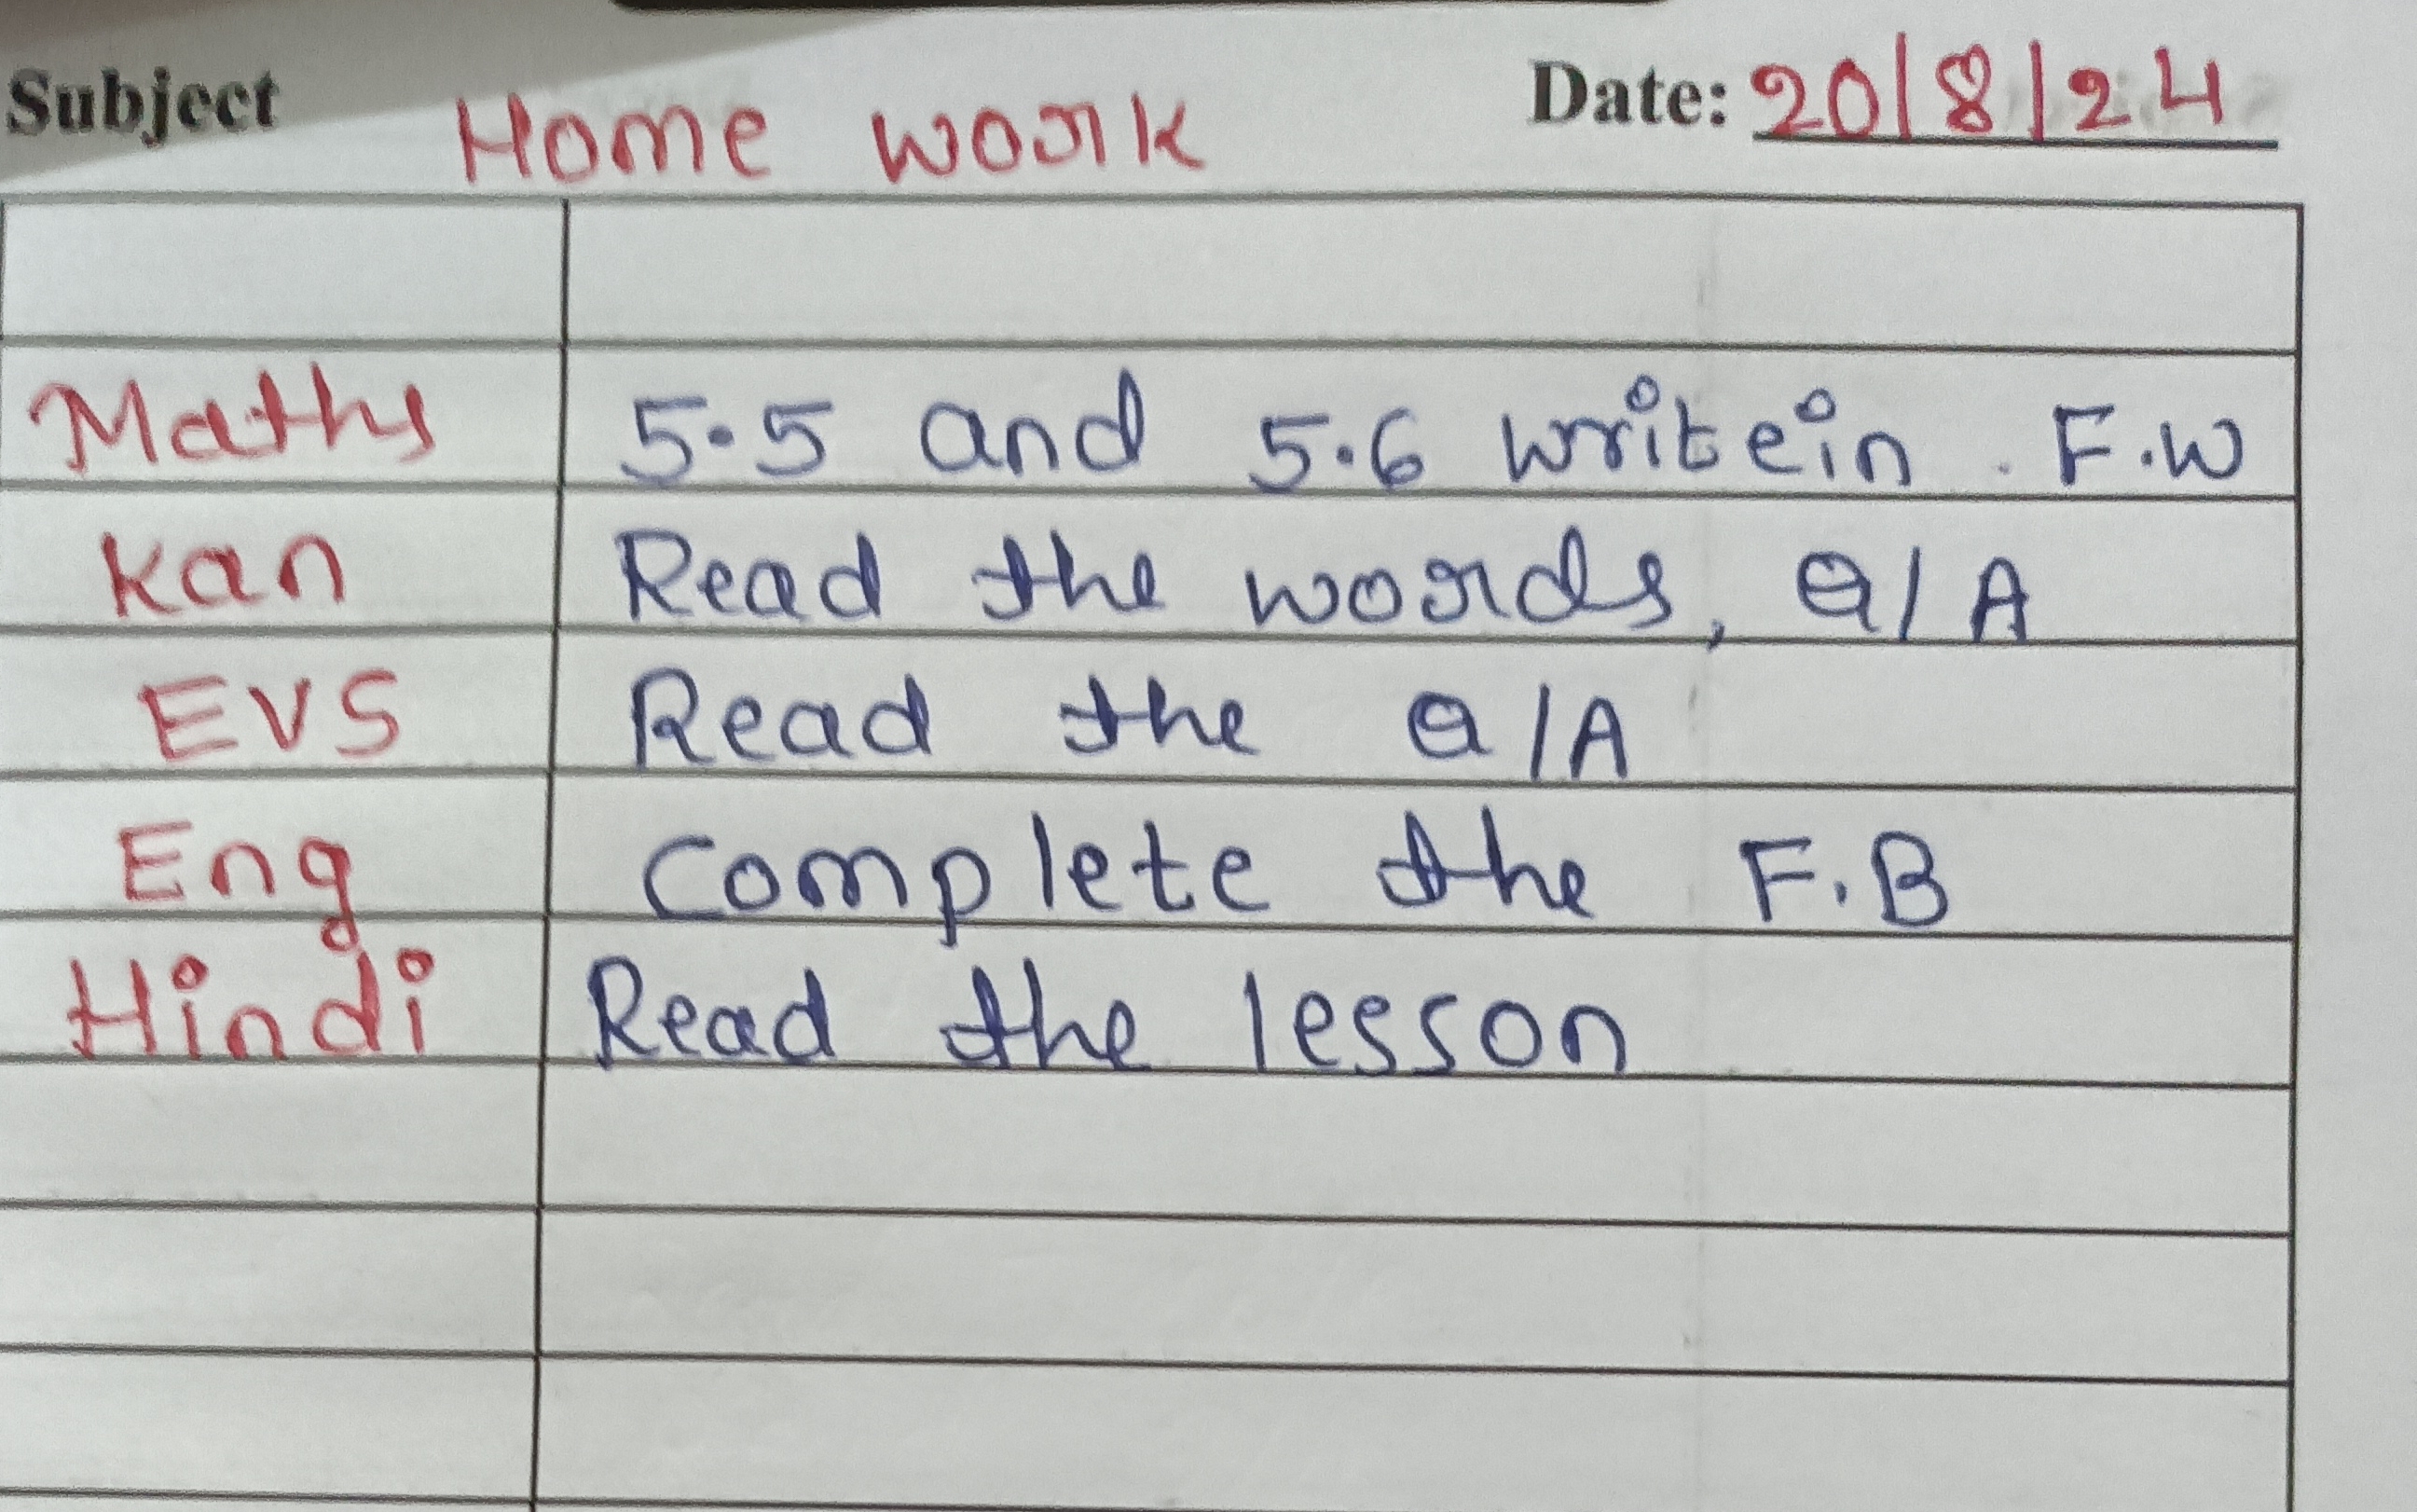 Subject Home work Date: 20/8/24
Maths 5.5 and 5.6 write in . F.W
Kan Read the words, Q/A
EVS Read the Q/A
Eng Complete the F.B
Hindi Read the lesson